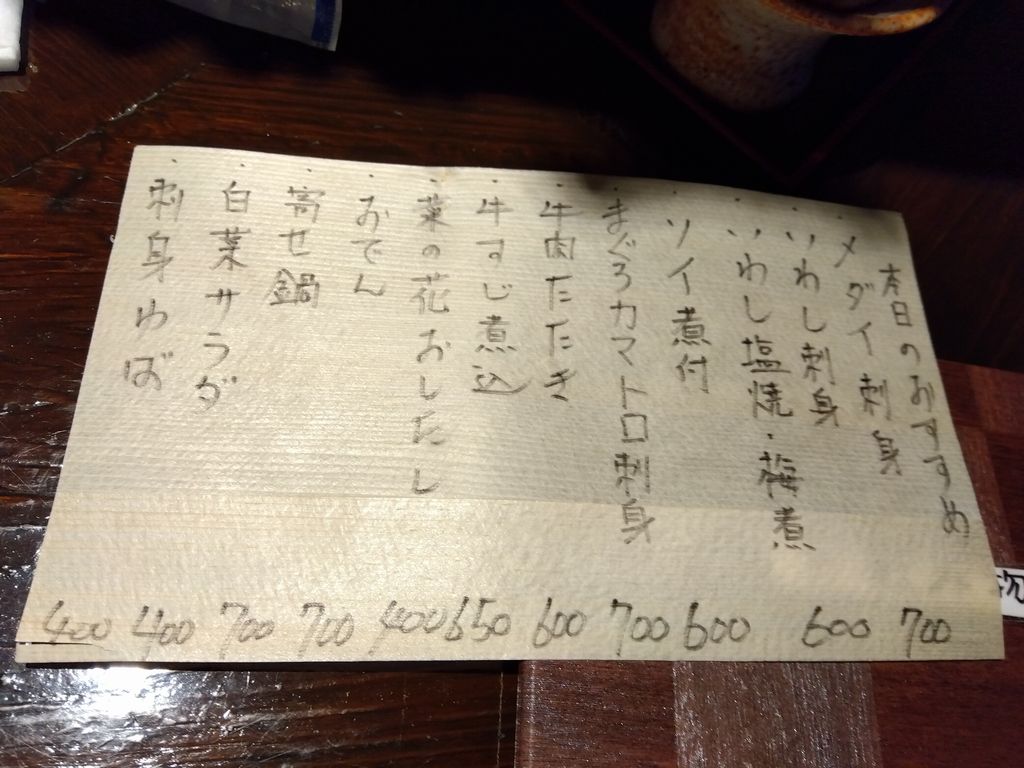 本日のおすすめ
・メダイ刺身 700
・いわし刺身
・いわし塩焼・梅煮 600
・ソイ煮付 600
・まぐろカマトロ刺身 700
・牛肉たたき 600
・牛すじ煮込 650
・菜の花おしたし 400
・おでん 700
・寄せ鍋 700
・白菜サラダ 400
・刺身ゆば 400